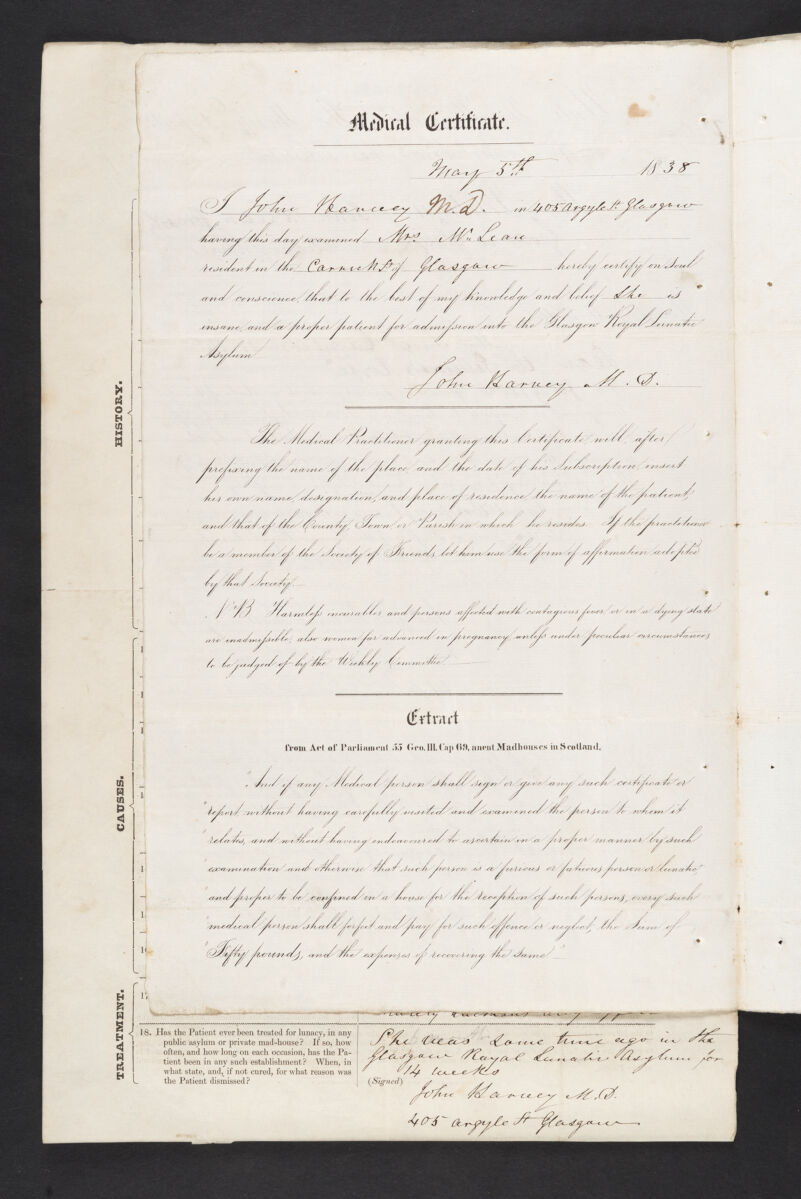 Medical Certificate.
May 5th 1838
I John Harvey M.D. in 405 Argyle St Glasgow
having this day examined Mrs McLean
resident in the Carrick St of Glasgow hereby certify on soul
and conscience, that to the best of my knowledge and belief she is
insane, and a proper patient for admission into the Glasgow Royal Lunatic
Asylum
John Harvey M.D.
The Medical Practitioner granting this Certificate will, after
prefixing the name of the place, and the date of his Subscription, insert
his own name, designation, and place of residence, the name of the patient,
and that of the County, Town or Parish in which he resides. If the practitioner
be a member of the Society of Friends, let him use the form of affirmation adopted
by that Society.
N.B. Harmless incurables and persons affected with contagious fever or in a dying state
are inadmissible; also women far advanced in pregnancy, unless under peculiar circumstances,
to be judged of by the Weekly Committee
Extract
from Act of Parliament 55 Geo. III. Cap 69, anent Madhouses in Scotland.
"And if any Medical person shall sign or give any such certificate or
"report without having carefully visited and examined the person to whom it
"relates, and without having endeavoured to ascertain in a proper manner by such
"examination and otherwise that such person is a furious or fatuous person or lunatic,
"and proper to be confined in a house for the reception of such persons, every such
"medical person shall forfeit and pay for such offence or neglect, the Sum of
"Fifty pounds, and the expenses of recovering the same"
HISTORY.
CAUSES.
TREATMENT.
17
18. Has the Patient ever been treated for lunacy, in any
public asylum or private mad-house? If so, how
often, and how long on each occasion, has the Pa-
tient been in any such establishment? When, in
what state, and, if not cured, for what reason was
the Patient dismissed?
She was some time ago in the
Glasgow Royal Lunatic Asylum for
14 weeks
(Signed)
John Harvey M.D.
405 Argyle St Glasgow